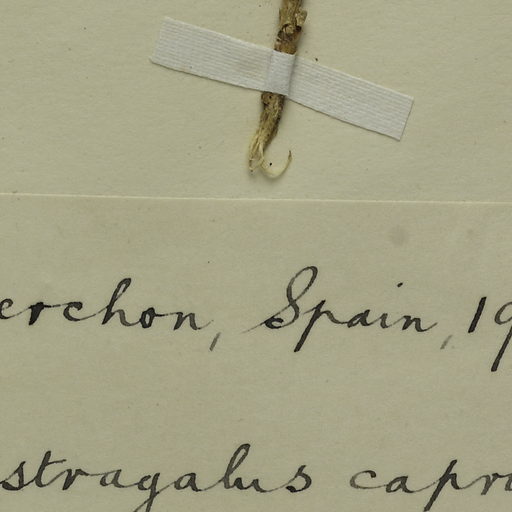 erchon, Spain, 19
stragalus capri